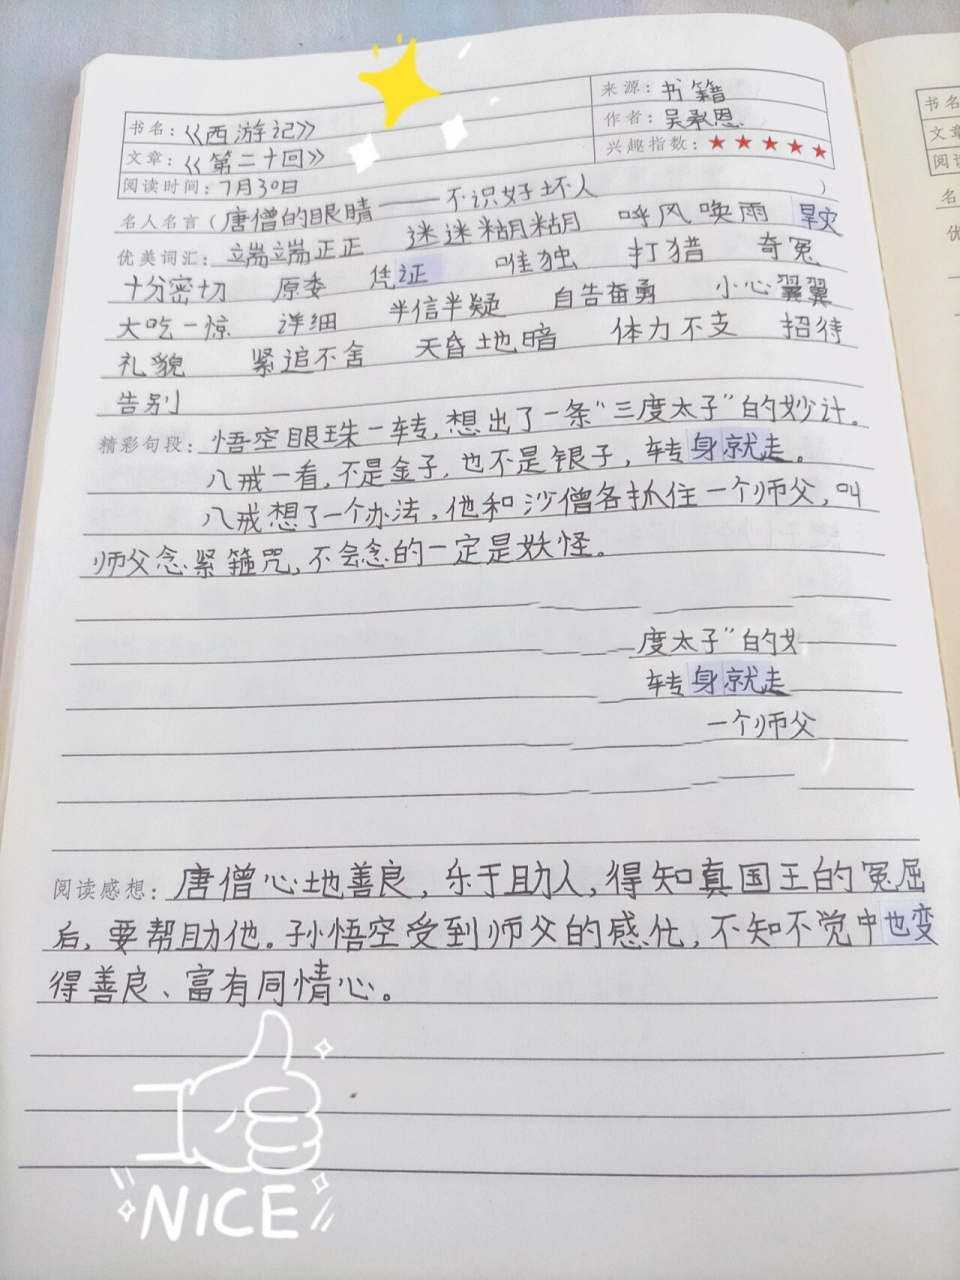 书名：《西游记》 来源：书籍
文章：《第二十回》 作者：吴承恩
阅读时间：7月30日 兴趣指数：★★★★★
名人名言（唐僧的眼睛——不识好坏人）
优美词汇：端端正正 迷迷糊糊 呼风唤雨 旱灾
十分密切 原委 凭证 唯独 打猎 奇冤
大吃一惊 详细 半信半疑 自告奋勇 小心翼翼
礼貌 紧追不舍 天昏地暗 体力不支 招待
告别
精彩句段：悟空眼珠一转，想出了一条“三度太子”的妙计。
八戒一看，不是金子，也不是银子，转身就走。
八戒想了一个办法，他和沙僧各抓住一个师父，叫
师父念紧箍咒，不会念的一定是妖怪。
度太子”的
转身就走
一个师父
阅读感想：唐僧心地善良，乐于助人，得知真国王的冤屈
后，要帮助他。孙悟空受到师父的感化，不知不觉中也变
得善良、富有同情心。
NICE
书名
文章
阅读
名
优